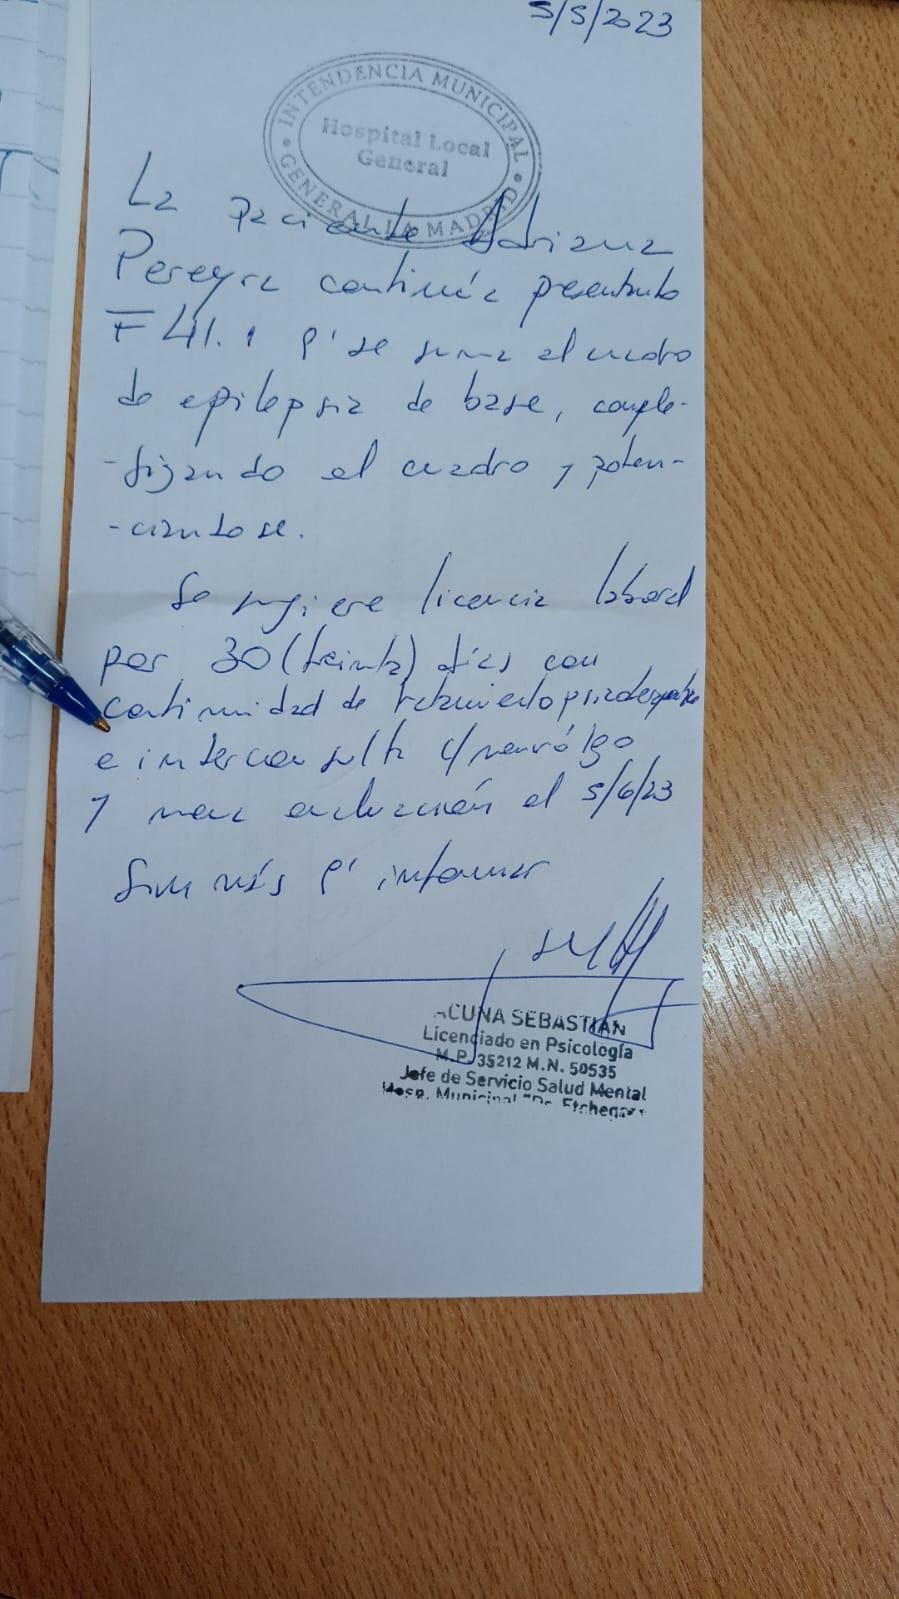 5/5/2023
INTENDENCIA MUNICIPAL
Hospital Local
General
GENERAL LA MADRID
La paciente Adriana
Pereyra continúa presentando
F 41.1 q' se suma al cuadro
de epilepsia de base, comple-
-jizando el cuadro y poten-
-ciandose.
Se sugiere licencia laboral
por 30 (treinta) días con
continuidad de tratamiento psicoterapéutico
e interconsulta c/ neurólgo
y nueva evaluación el 5/6/23
Sin más q' informar
ACUNA SEBASTIAN
Licenciado en Psicología
M.P. 35212 M.N. 50535
Jefe de Servicio Salud Mental
Hosp. Municipal "Dr. Etchegar